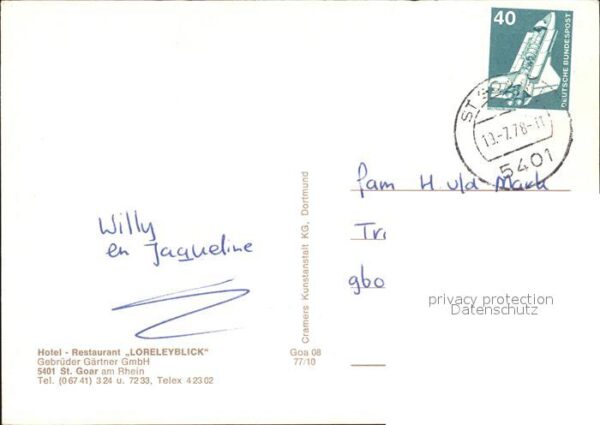 40
DEUTSCHE BUNDESPOST
ST. GOAR
-7.78-11
5401
fam H v/d Mark
Willy
en Jaqueline
gbo
privacy protection
Datenschutz
Cramers Kunstanstalt KG, Dortmund
Hotel - Restaurant „LORELEYBLICK"
Gebrüder Gärtner GmbH
5401 St. Goar am Rhein
Tel. (0 67 41) 3 24 u. 72 33, Telex 4 23 02
Goa 08
77/10